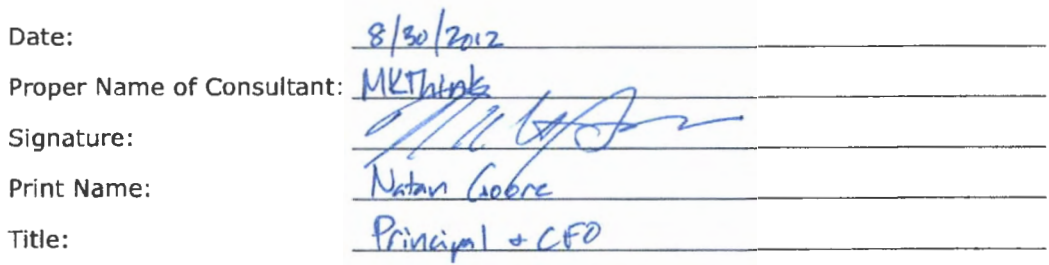 Date: 8/30/2012
Proper Name of Consultant: MKThink
Signature:
Print Name: Natan
Title: Principal + CFO